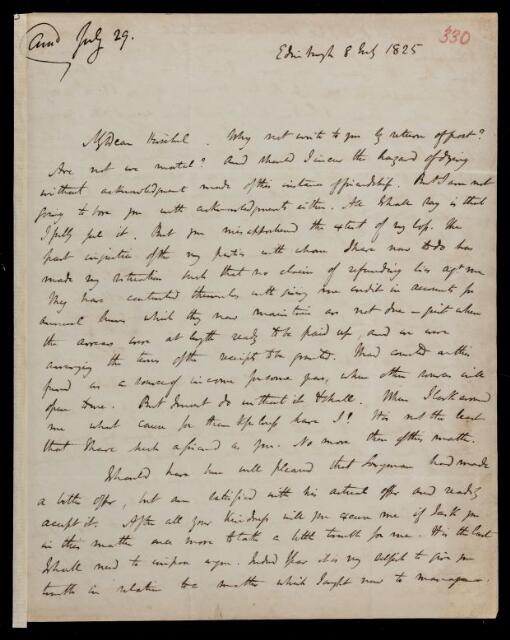 Ansd July 29.
330
Edinburgh 8 July 1825
My Dear Herschel. Why not write to you by return of post?
Are not we mortal? And should I incur the hazard of dying
without acknowledgment made of this instance of friendship. But I am not
going to bore you with acknowledgments either. All I shall say is that
I fully feel it. But you misapprehend the extent of my loss. The
past of the parties with whom I have now to do has
made my situation such that no claim of refunding lies agt me
They have contented themselves with giving me credit in accounts for
annual sums which they now maintain are not due – just when
the arrears were at length ready to be paid up, and we were
arranging the terms of the receipts to be granted. I had counted on this
fund as a source of income for some years, when other sources will
open to me. But I must do without it & shall. When I look around
me what cause for thankfulness have I! It is not the least
that I have such a friend as you. No more then of this matter.
I should have been well pleased that Longman had made
a better offer, but am satisfied with his actual offer and readily
accept it. After all your kindness will you excuse me if I ask you
in this matter once more to take a little trouble for me. It is the last
I shall need to impose upon you. Indeed I fear it is very selfish to give you
trouble in relation to a matter which I ought now to manage